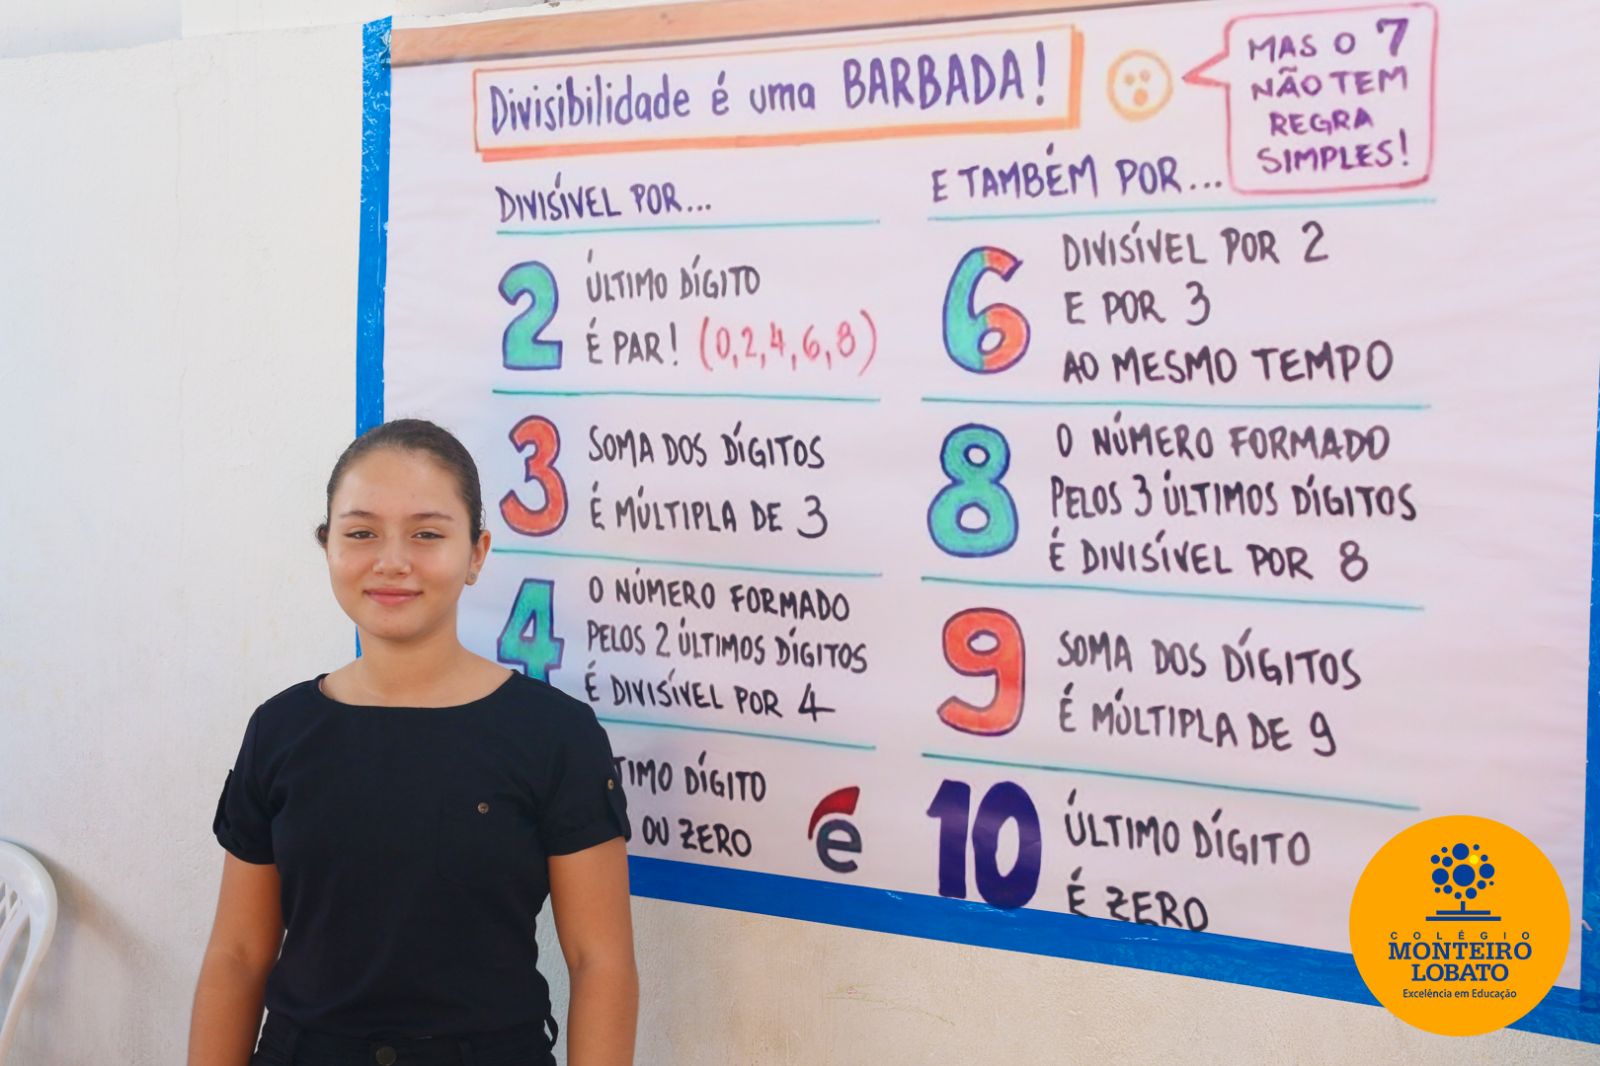 Divisibilidade é uma BARBADA!
MAS O 7
NÃO TEM
REGRA
SIMPLES!
DIVISÍVEL POR...
2
ÚLTIMO DÍGITO
É PAR! (0,2,4,6,8)
3
SOMA DOS DÍGITOS
É MÚLTIPLA DE 3
4
O NÚMERO FORMADO
PELOS 2 ÚLTIMOS DÍGITOS
É DIVISÍVEL POR 4
TIMO DÍGITO
OU ZERO
e
E TAMBÉM POR...
6
DIVISÍVEL POR 2
E POR 3
AO MESMO TEMPO
8
O NÚMERO FORMADO
PELOS 3 ÚLTIMOS DÍGITOS
É DIVISÍVEL POR 8
9
SOMA DOS DÍGITOS
É MÚLTIPLA DE 9
10
ÚLTIMO DÍGITO
É ZERO
COLÉGIO
MONTEIRO
LOBATO
Excelência em Educação